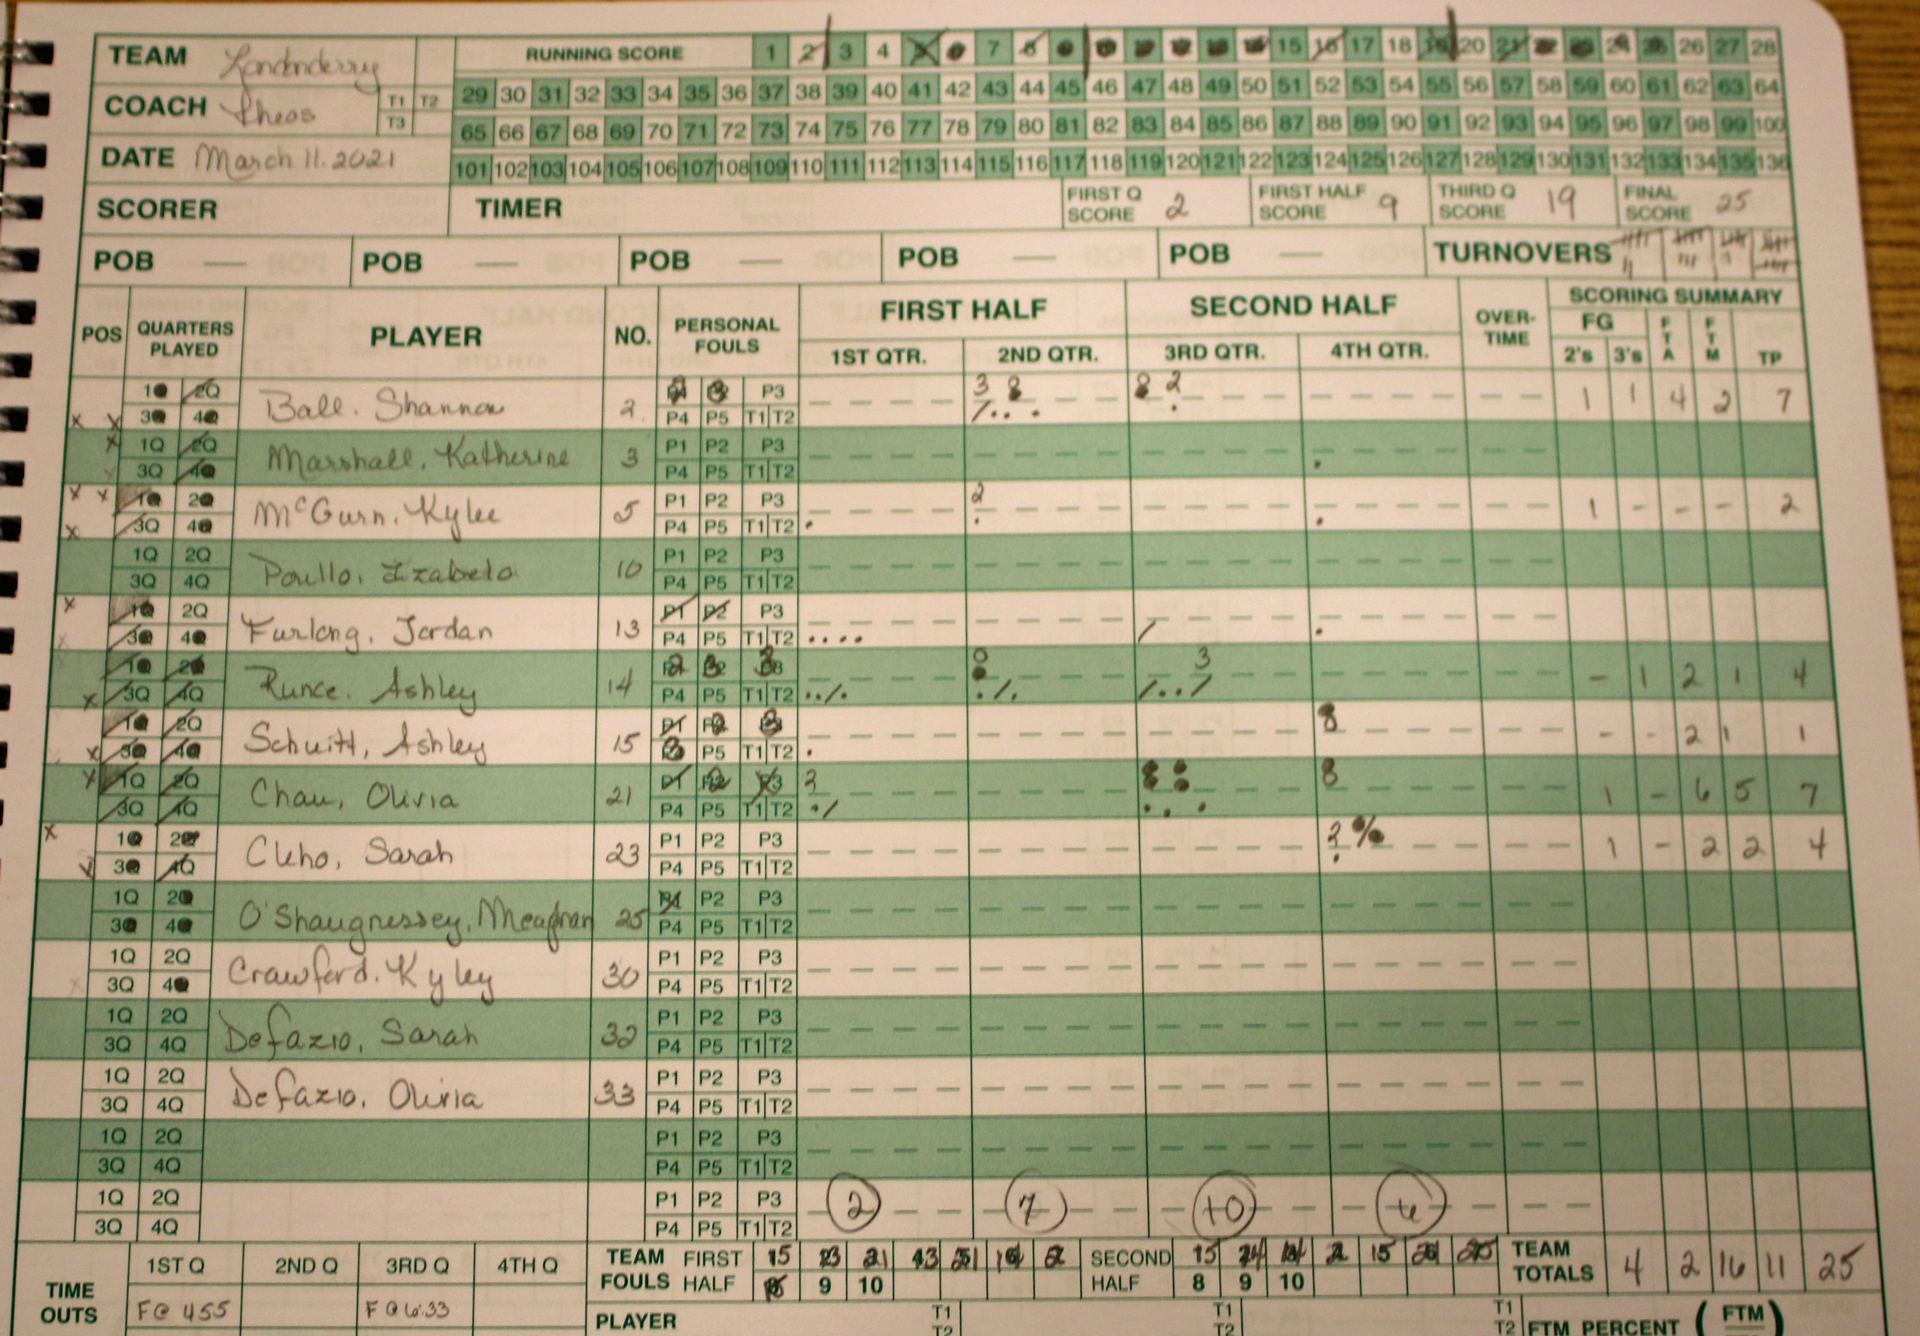 TEAM Londonderry
RUNNING SCORE 1 2 3 4 5 7 8 15 16 17 18 19 20 21 24 25 26 27 28
COACH Lheos T1 T2 T3
29 30 31 32 33 34 35 36 37 38 39 40 41 42 43 44 45 46 47 48 49 50 51 52 53 54 55 56 57 58 59 60 61 62 63 64
65 66 67 68 69 70 71 72 73 74 75 76 77 78 79 80 81 82 83 84 85 86 87 88 89 90 91 92 93 94 95 96 97 98 99 100
DATE March 11. 2021
101 102 103 104 105 106 107 108 109 110 111 112 113 114 115 116 117 118 119 120 121 122 123 124 125 126 127 128 129 130 131 132 133 134 135 136
SCORER TIMER FIRST Q SCORE 2 FIRST HALF SCORE 9 THIRD Q SCORE 19 FINAL SCORE 25
POB — POB — POB — POB — POB — TURNOVERS
POS QUARTERS PLAYED PLAYER NO. PERSONAL FOULS FIRST HALF SECOND HALF OVER-TIME SCORING SUMMARY
1ST QTR. 2ND QTR. 3RD QTR. 4TH QTR. FG 2's 3's FTA FTM TP
1Q 2Q Ball. Shannon 2 P3 3 8 8 2 1 1 4 2 7
3Q 4Q P4 P5 T1 T2
1Q 2Q Marshall, Katherine 3 P1 P2 P3
3Q 4Q P4 P5 T1 T2
1Q 2Q McGurn, Kylee 5 P1 P2 P3 2 1 - - - 2
3Q 4Q P4 P5 T1 T2
1Q 2Q 10 P1 P2 P3
3Q 4Q P4 P5 T1 T2
1Q 2Q Furlong, Jordan 13 P1 P2 P3
3Q 4Q P4 P5 T1 T2
1Q 2Q Runce. Ashley 14 2 3 3 0 3 - 1 2 1 4
3Q 4Q P4 P5 T1 T2
1Q 2Q Schuitt, Ashley 15 P1 2 3 8 - - 2 1 1
3Q 4Q P5 T1 T2
1Q 2Q Chau, Olivia 21 P1 P2 P3 2 8 8 8 1 - 6 5 7
3Q 4Q P4 P5 T1 T2
1Q 2Q Cleho, Sarah 23 P1 P2 P3 2 1 - 2 2 4
3Q 4Q P4 P5 T1 T2
1Q 2Q O'Shaugnessey, Meaghan 25 P1 P2 P3
3Q 4Q P4 P5 T1 T2
1Q 2Q Crawford. Kyley 30 P1 P2 P3
3Q 4Q P4 P5 T1 T2
1Q 2Q Defazio, Sarah 32 P1 P2 P3
3Q 4Q P4 P5 T1 T2
1Q 2Q Defazio, Olivia 33 P1 P2 P3
3Q 4Q P4 P5 T1 T2
1Q 2Q P1 P2 P3
3Q 4Q P4 P5 T1 T2
1Q 2Q P1 P2 P3 2 7 10 6
3Q 4Q P4 P5 T1 T2
TIME OUTS 1ST Q 2ND Q 3RD Q 4TH Q TEAM FOULS FIRST HALF 15 23 21 13 SECOND HALF 15 2 15 TEAM TOTALS 4 2 16 11 25
F@ 455 F@ 6:33 9 10 8 9 10
PLAYER T1 T2 T1 T2 T1 T2 FTM PERCENT (FTM)